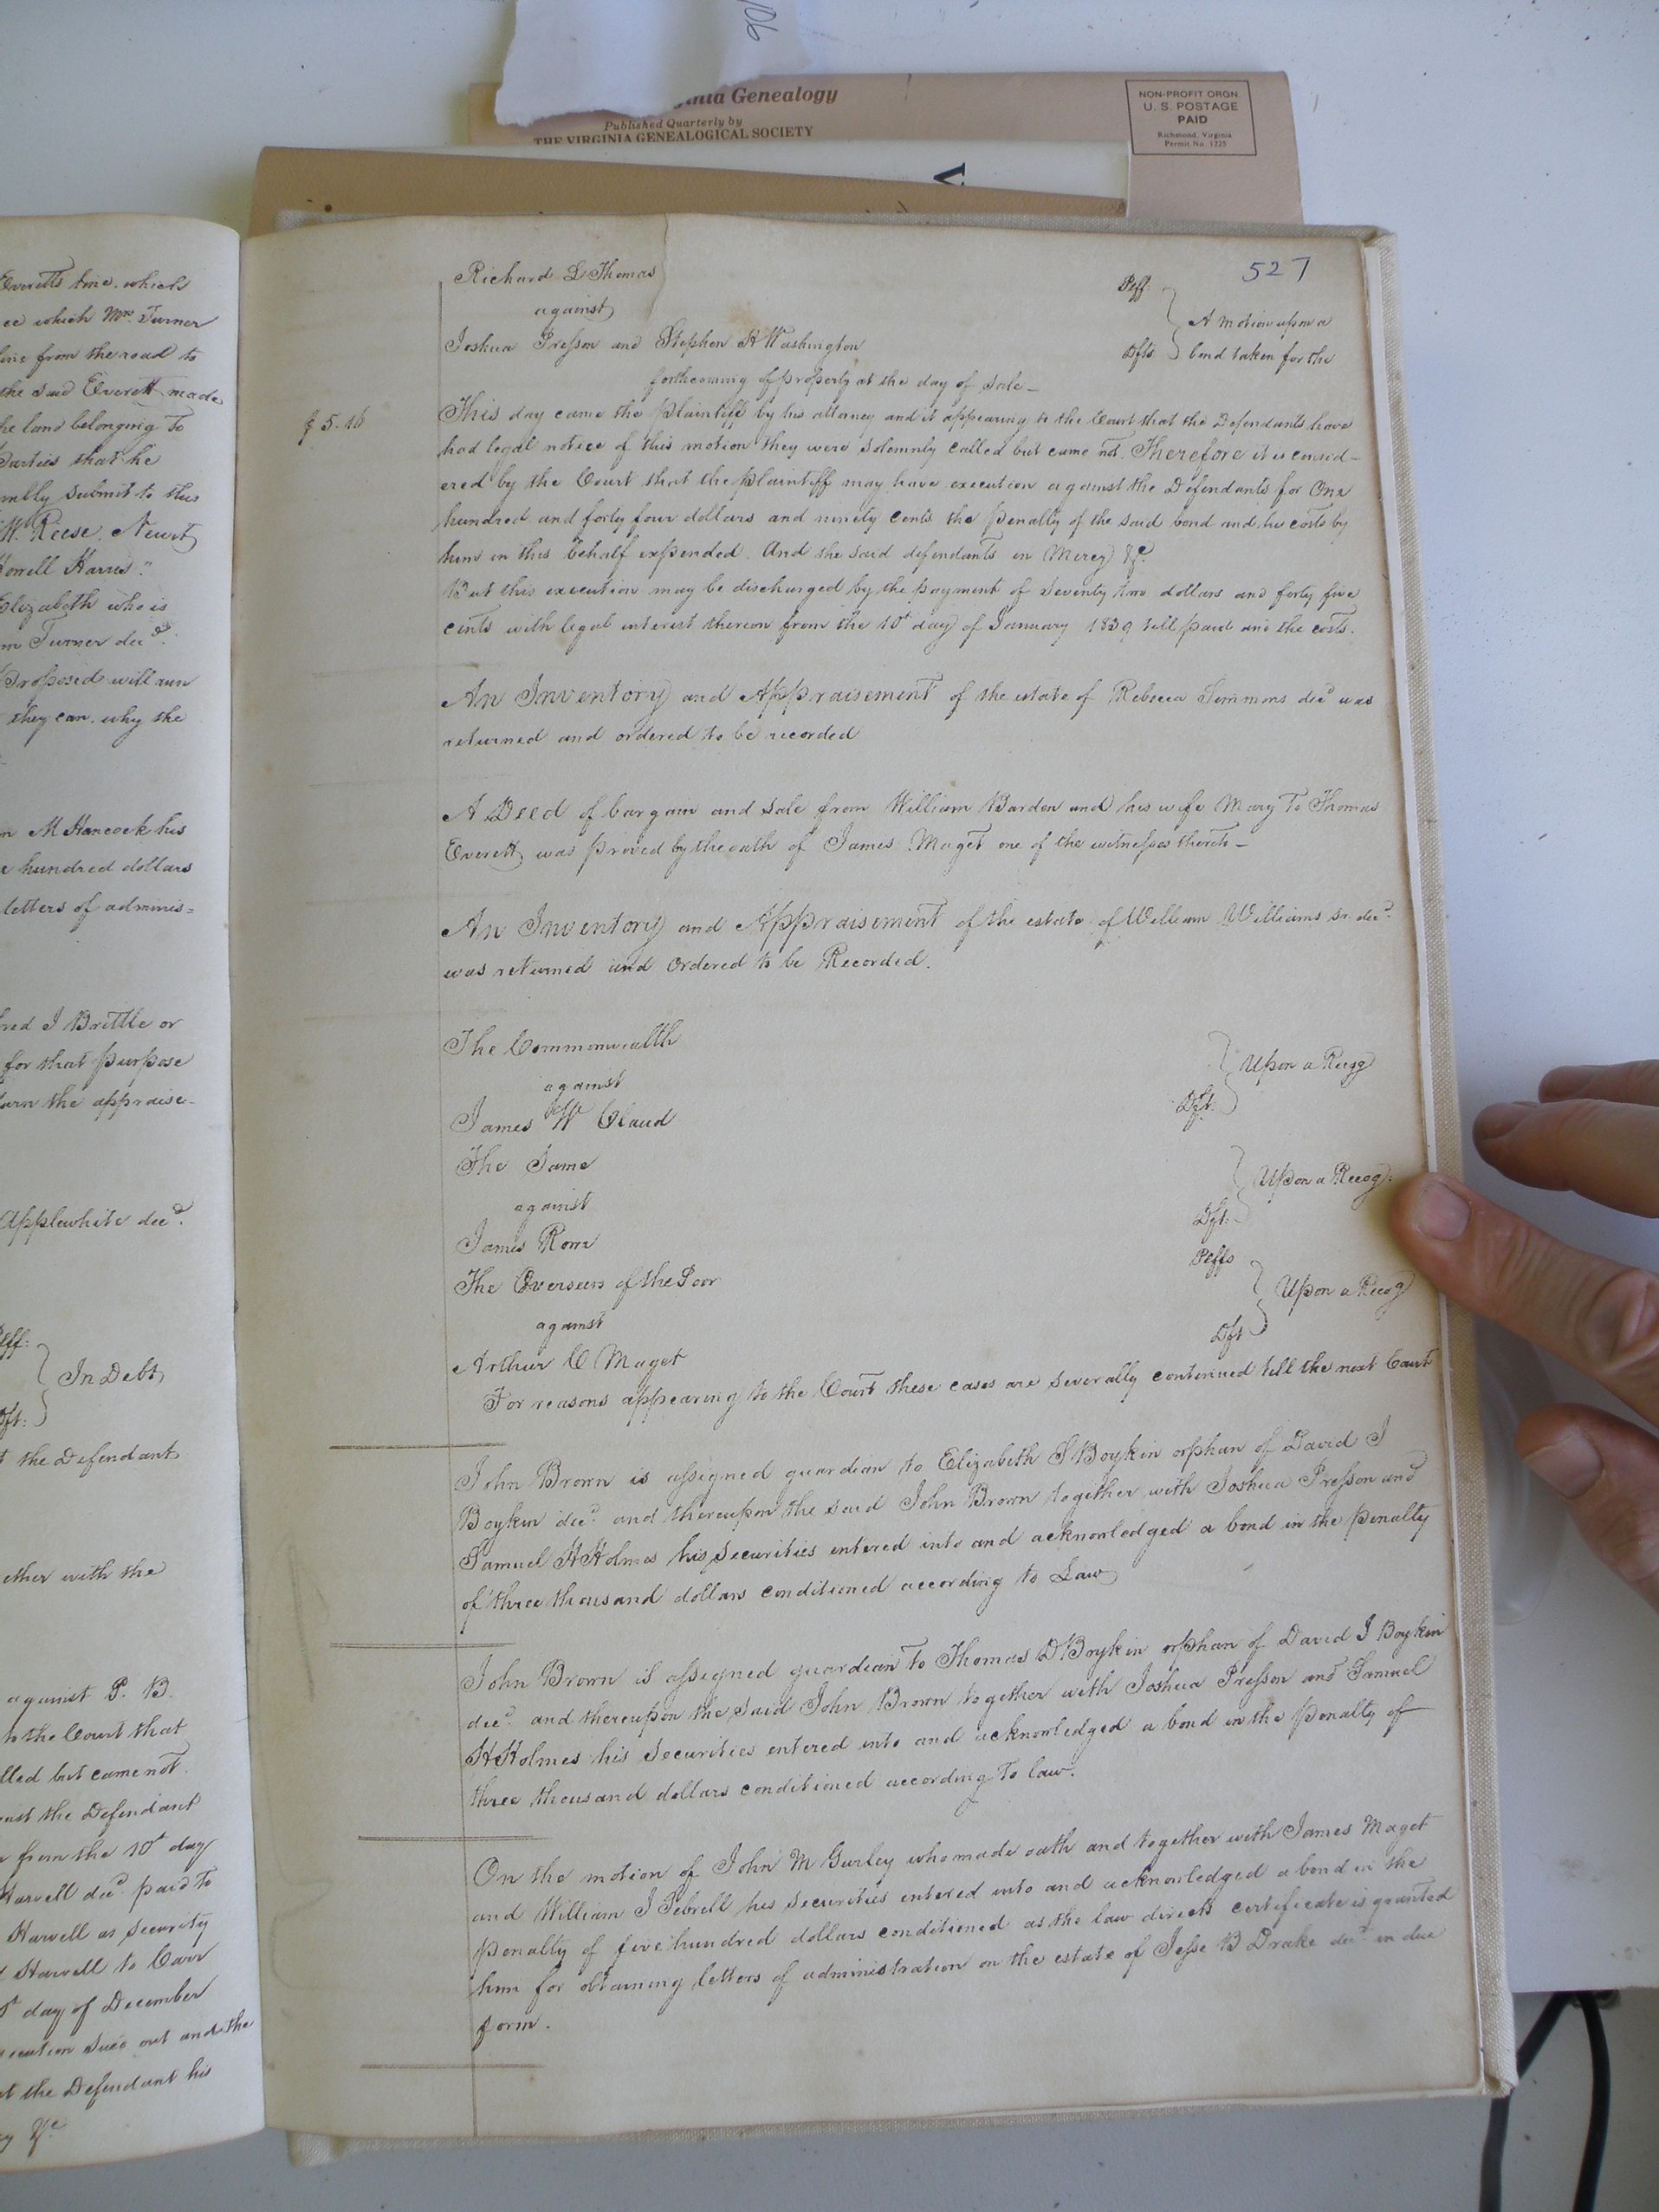 106
nia Genealogy
Published Quarterly by
THE VIRGINIA GENEALOGICAL SOCIETY
NON-PROFIT ORGN.
U. S. POSTAGE
PAID
Richmond, Virginia
Permit No. 1225
V
Everetts line. which
ce which Mrs. Turner
line from the road to
the said Everett made
he land belonging to
Parties that he
submit to this
W. Reese, Newit
Harris."
Elizabeth who is
m Turner decd.
Proposed will run
they can. why the
n M Hancock his
hundred dollars
letters of adminis=
red J Brittle or
for that purpose
turn the appraise-
Applewhite decd.
Plff:
In Debt
Dft:
t the Defendant
ether with the
against P. B.
to the Court that
lled but came not.
inst the Defendant
from the 10t day
Harvell decd. paid to
Harvell as security
Harvell to Carr
day of December
execution sued out and the
t the Defendant his
y &c
527
Richard L Thomas
Plff.
against
A motion upon a
Joshua Presson and Stephen H Washington
Dfts
bond taken for the
forthcoming of property at the day of sale-
$ 5.16
This day came the plaintiff by his attorney and it appearing to the Court that the Defendants have
had legal notice of this motion they were solemnly called but came not. Therefore it is consid-
ered by the Court that the plaintiff may have execution against the Defendants for One
hundred and forty four dollars and ninety cents the penalty of the said bond and his costs by
him in this behalf expended. And the said defendants in Mercy &c.
But this execution may be discharged by the payment of Seventy two dollars and forty five
cents with legal interest thereon from the 10t day of January 1839 till paid and the costs.
An Inventory and Appraisement of the estate of Rebecca Simmons decd was
returned and ordered to be recorded
A Deed of bargain and sale from William Barden and his wife Mary To Thomas
Everett was proved by the oath of James Maget one of the witnesses thereto-
An Inventory and Appraisement of the estate of William Williams sr. decd.
was returned and Ordered to be Recorded.
The Commonwealth
against
Upon a Recog
James W Claud
Dft.
The Same
against
Upon a Recog:
James Rom
Dft.
The Overseers of the Poor
Plffs
against
Upon a Recog
Arthur C Maget
Dft
For reasons appearing to the Court these cases are severally continued till the next Court
John Brown is assigned guardian to Elizabeth S Boykin orphan of David J
Boykin decd. and thereupon the said John Brown together with Joshua Presson and
Samuel H Holmes his securities entered into and acknowledged a bond in the penalty
of three thousand dollars conditioned according to Law
John Brown is assigned guardian to Thomas D Boykin orphan of David J Boykin
decd. and thereupon the said John Brown together with Joshua Presson and Samuel
H Holmes his securities entered into and acknowledged a bond in the penalty of
three thousand dollars conditioned according To law.
On the motion of John M Gurley who made oath and together with James Maget
and William J Sebrell his securities entered into and acknowledged a bond in the
penalty of five hundred dollars conditioned as the law directs certificate is granted
him for obtaining letters of administration on the estate of Jesse B Drake decd. in due
form.